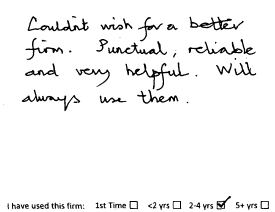 Couldn't wish for a better
firm. Punctual, reliable
and very helpful. Will
always use them.
I have used this firm: 1st Time ☐ <2 yrs ☐ 2-4 yrs ☑ 5+ yrs ☐